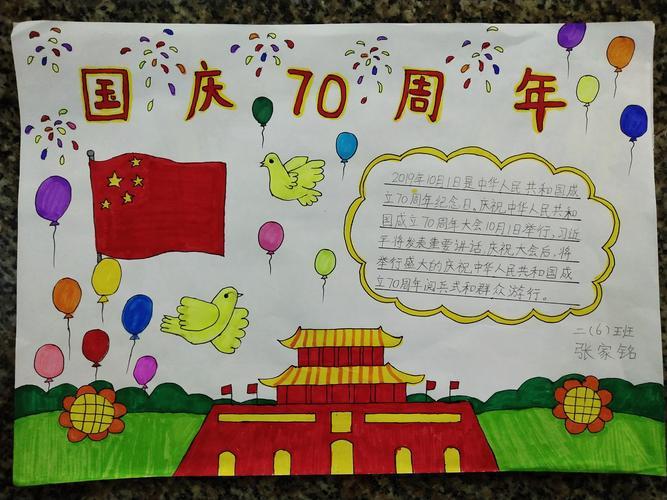 国庆70周年
2019年10月1日是中华人民共和国成
立70周年纪念日、庆祝中华人民共和
国成立70周年大会10月1日举行，习近
平将发表重要讲话。庆祝大会后，将
举行盛大的庆祝中华人民共和国成
立70周年阅兵式和群众游行。
二(6)班
张家铭